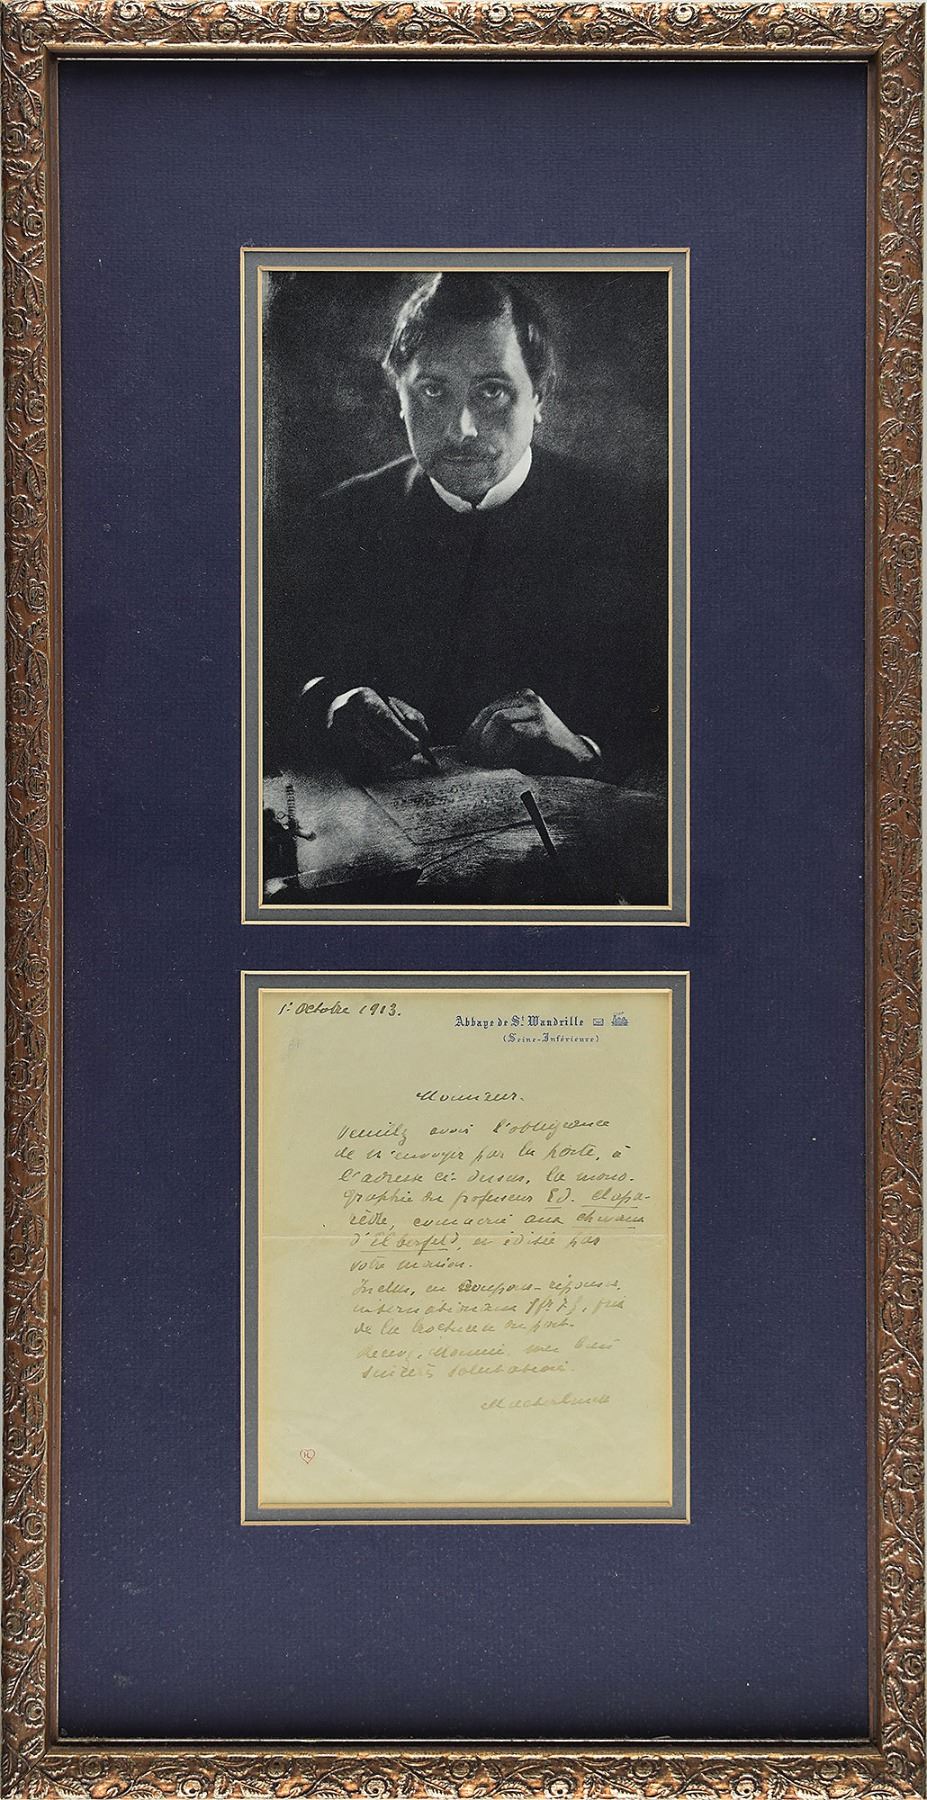 1er Octobre 1913.
Abbaye de St Wandrille
(Seine-Inférieure)
Monsieur.
Veuillez avoir l'obligeance
de m'envoyer par la poste, à
l'adresse ci-dessus, la mono-
graphie du professeur Ed. Clapa-
rède, consacrée aux chevaux
d'Elberfeld, et éditée par
votre maison.
Inclus, en coupons-réponse
internationaux
de la brochure
Monsieur, mes bien
sincères salutations.
Maeterlinck